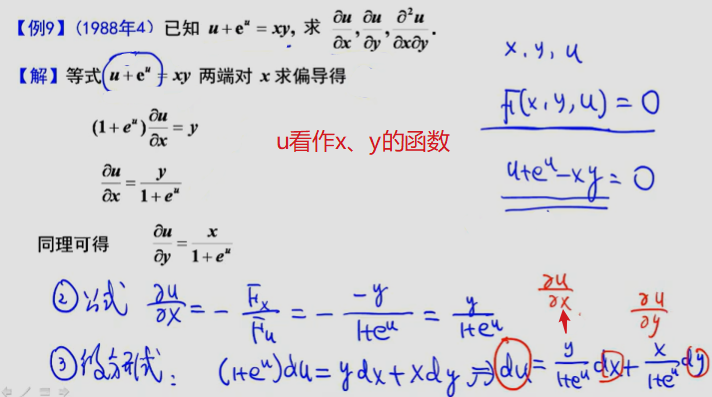 【例9】(1988年4) 已知 u+eᵘ = xy, 求 ∂u/∂x, ∂u/∂y, ∂²u/∂x∂y.
【解】等式 u+eᵘ = xy 两端对 x 求偏导得
(1+eᵘ)∂u/∂x = y
∂u/∂x = y/(1+eᵘ)
同理可得 ∂u/∂y = x/(1+eᵘ)
x, y, u
F(x, y, u) = 0
u+eᵘ-xy = 0
u看作x、y的函数
②公式 ∂u/∂x = - Fx/Fu = - (-y)/(1+eᵘ) = y/(1+eᵘ)
∂u/∂x
∂u/∂y
③微分形式: (1+eᵘ)du = ydx+xdy ⇒ du = y/(1+eᵘ) dx + x/(1+eᵘ) dy